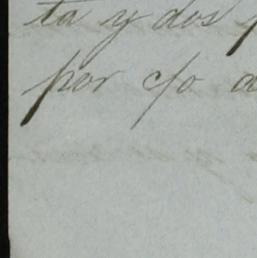 ta y dos
por c/o a